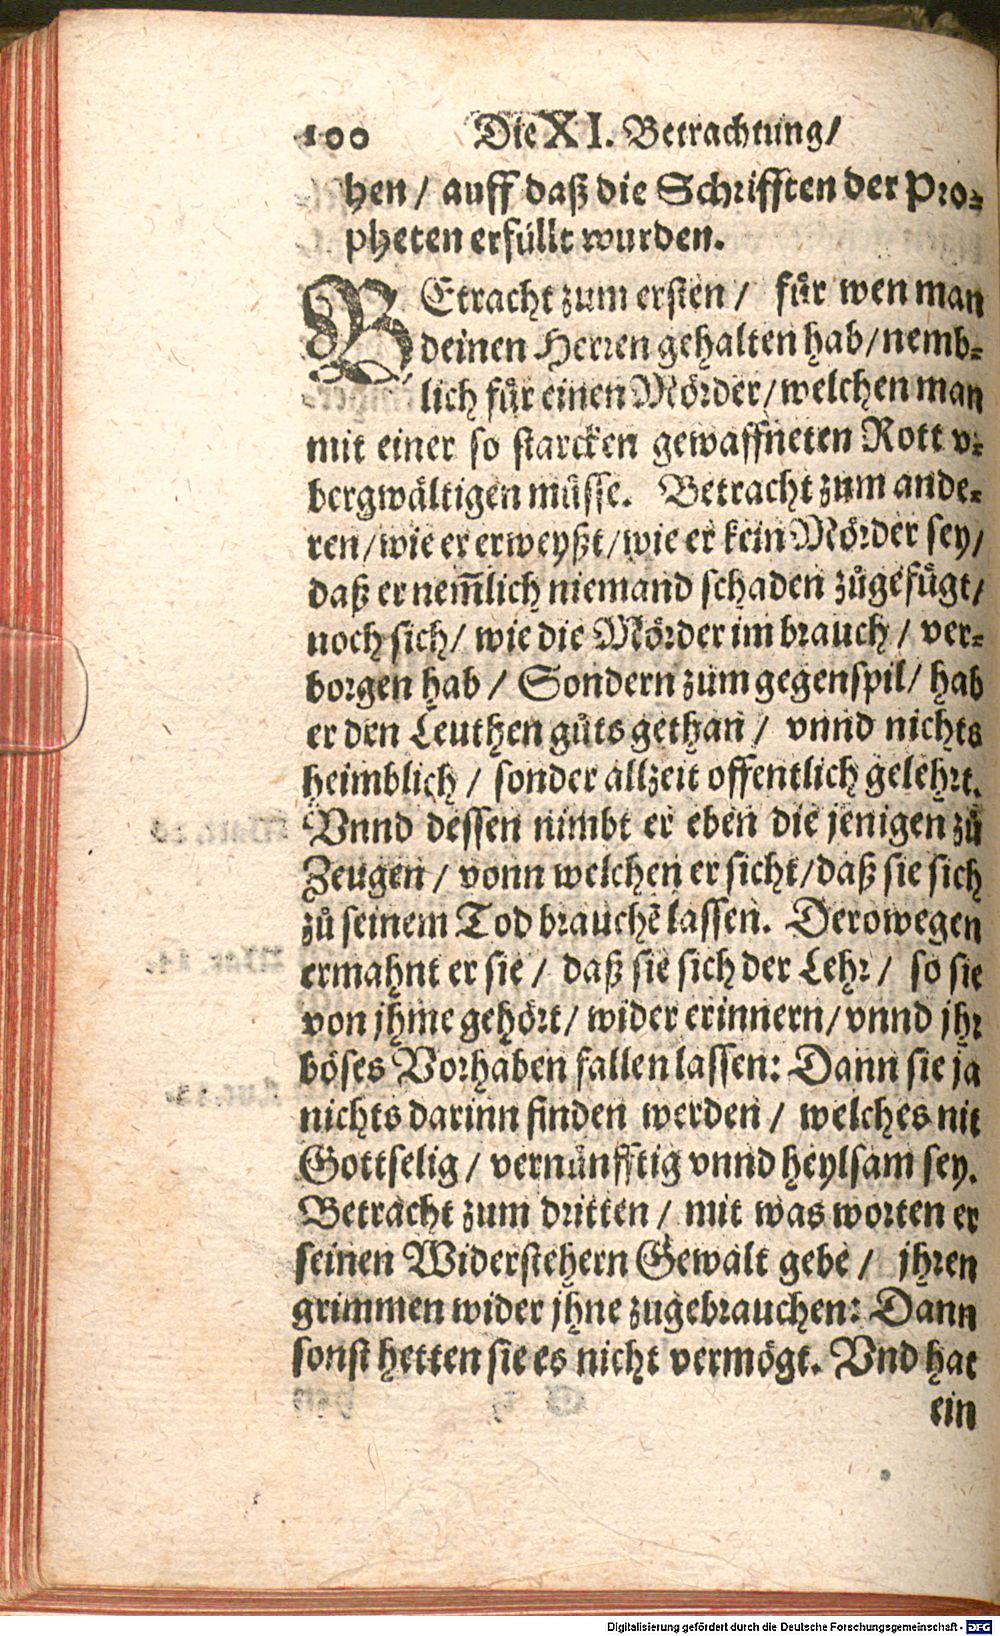 100 Die XI. Betrachtung/
hen/ auff daß die Schrifften der Pro-
pheten erfüllt wurden.
BEtracht zum ersten/ für wen man
deinen Herren gehalten hab/ nemb-
lich für einen Mörder/ welchen man
mit einer so starcken gewaffneten Rott v-
bergwältigen müsse. Betracht zum ande-
ren/ wie er erweyßt/ wie er kein Mörder sey/
daß er nem̃lich niemand schaden zůgefůgt/
noch sich/ wie die Mörder im brauch/ ver-
borgen hab/ Sondern zum gegenspil/ hab
er den Leuthen gůts gethan/ vnnd nichts
heimblich/ sonder allzeit offentlich gelehrt.
Vnnd dessen nimbt er eben die jenigen zů
Zeugen/ vonn welchen er sicht/ daß sie sich
zů seinem Tod brauchẽ lassen. Derowegen
ermahnt er sie/ daß sie sich der Lehr/ so sie
von jhme gehört/ wider erinnern/ vnnd jhr
böses Vorhaben fallen lassen: Dann sie ja
nichts darinn finden werden/ welches nit
Gottselig/ vernünfftig vnnd heylsam sey.
Betracht zum dritten/ mit was worten er
seinen Widerstehern Gewalt gebe/ jhren
grimmen wider jhne zugebrauchen: Dann
sonst hetten sie es nicht vermögt. Vnd hat
ein
Digitalisierung gefördert durch die Deutsche Forschungsgemeinschaft - DFG